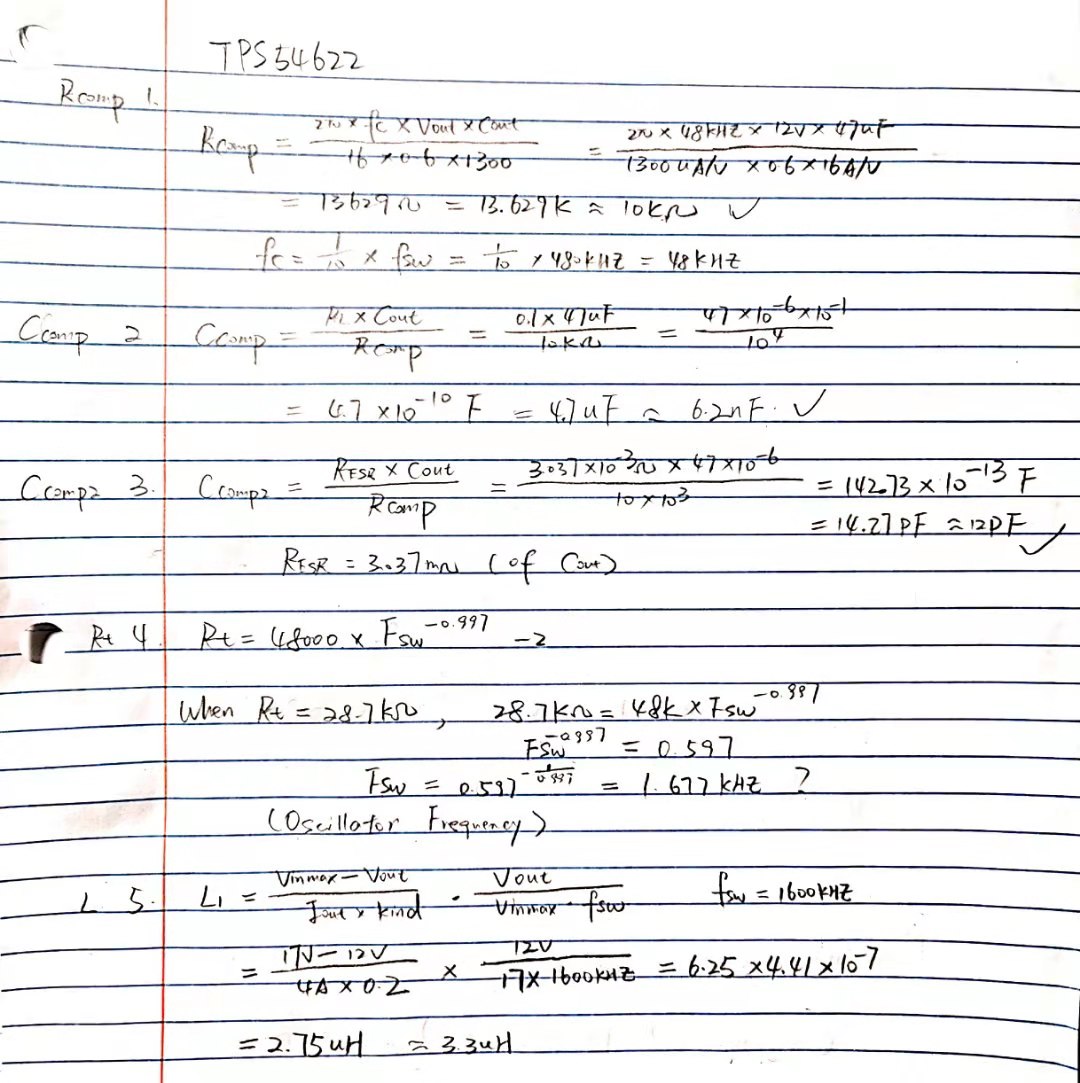 TPS54622
Rcomp 1.
Rcomp = (2π × fc × Vout × Cout) / (16 × 0.6 × 1300) = (2π × 48kHZ × 12V × 47uF) / (1300uA/V × 0.6 × 16A/V)
= 13629Ω = 13.629K ≈ 10KΩ ✓
fc = 1/10 × fsw = 1/10 × 480kHZ = 48kHZ
Ccomp 2 Ccomp = (RL × Cout) / Rcomp = (0.1 × 47uF) / 10KΩ = (47 × 10^-6 × 10^-1) / 10^4
= 4.7 × 10^-10 F = 4.7uF ≈ 6.2nF. ✓
Ccomp2 3. Ccomp2 = (RESR × Cout) / Rcomp = (3.037 × 10^-3Ω × 47 × 10^-6) / (10 × 10^3) = 142.73 × 10^-13 F
= 14.27PF ≈ 12PF ✓
RESR = 3.037mΩ (of Cout)
Rt 4. Rt = 48000 × Fsw^-0.997 -2
When Rt = 28.7kΩ, 28.7kΩ = 48k × Fsw^-0.997
Fsw^-0.997 = 0.597
Fsw = 0.597^(-1/0.997) = 1.677kHZ ?
(Oscillator Frequency)
L 5. L1 = (Vinmax - Vout) / (Iout × kind) · Vout / (Vinmax · fsw) fsw = 1600kHZ
= (17V - 12V) / (4A × 0.2) × 12V / (17 × 1600kHZ) = 6.25 × 4.41 × 10^-7
= 2.75uH ≈ 3.3uH